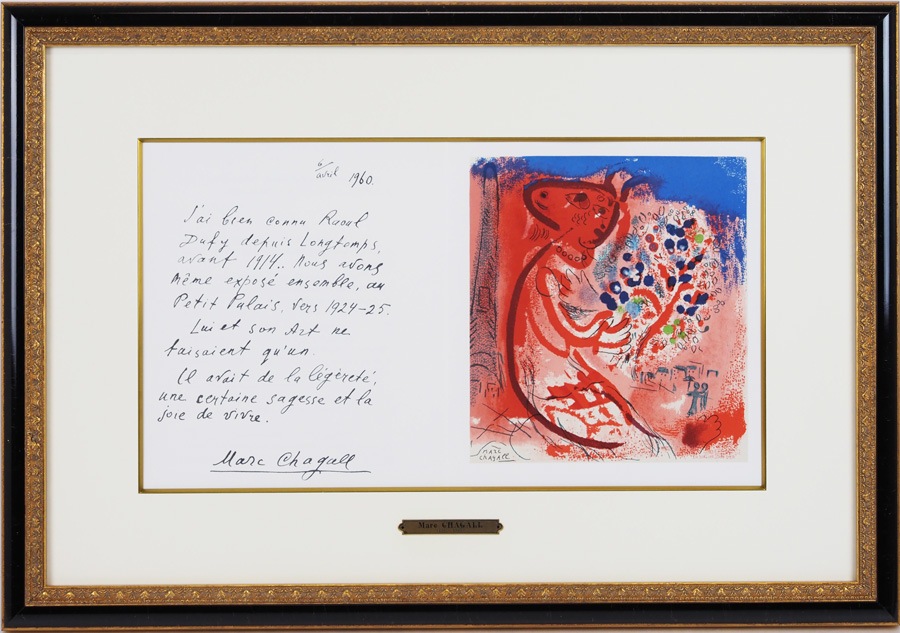 6/avril 1960.
J'ai bien connu Raoul
Dufy depuis Longtemps,
avant 1914.. Nous avons
même exposé ensemble, au
Petit Palais, vers 1924-25.
Lui et son Art ne
faisaient qu'un.
Il avait de la légèreté,
une certaine sagesse et la
joie de vivre.
Marc Chagall
MARC
CHAGALL
Marc CHAGALL